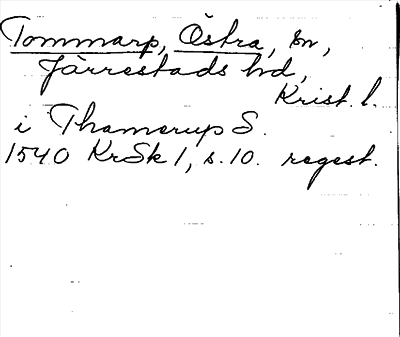 Tommarp, Östra, sn,
Järrestads hd,
Krist. l.
i Thamerup S.
1540 KrSk 1, s. 10. regest.